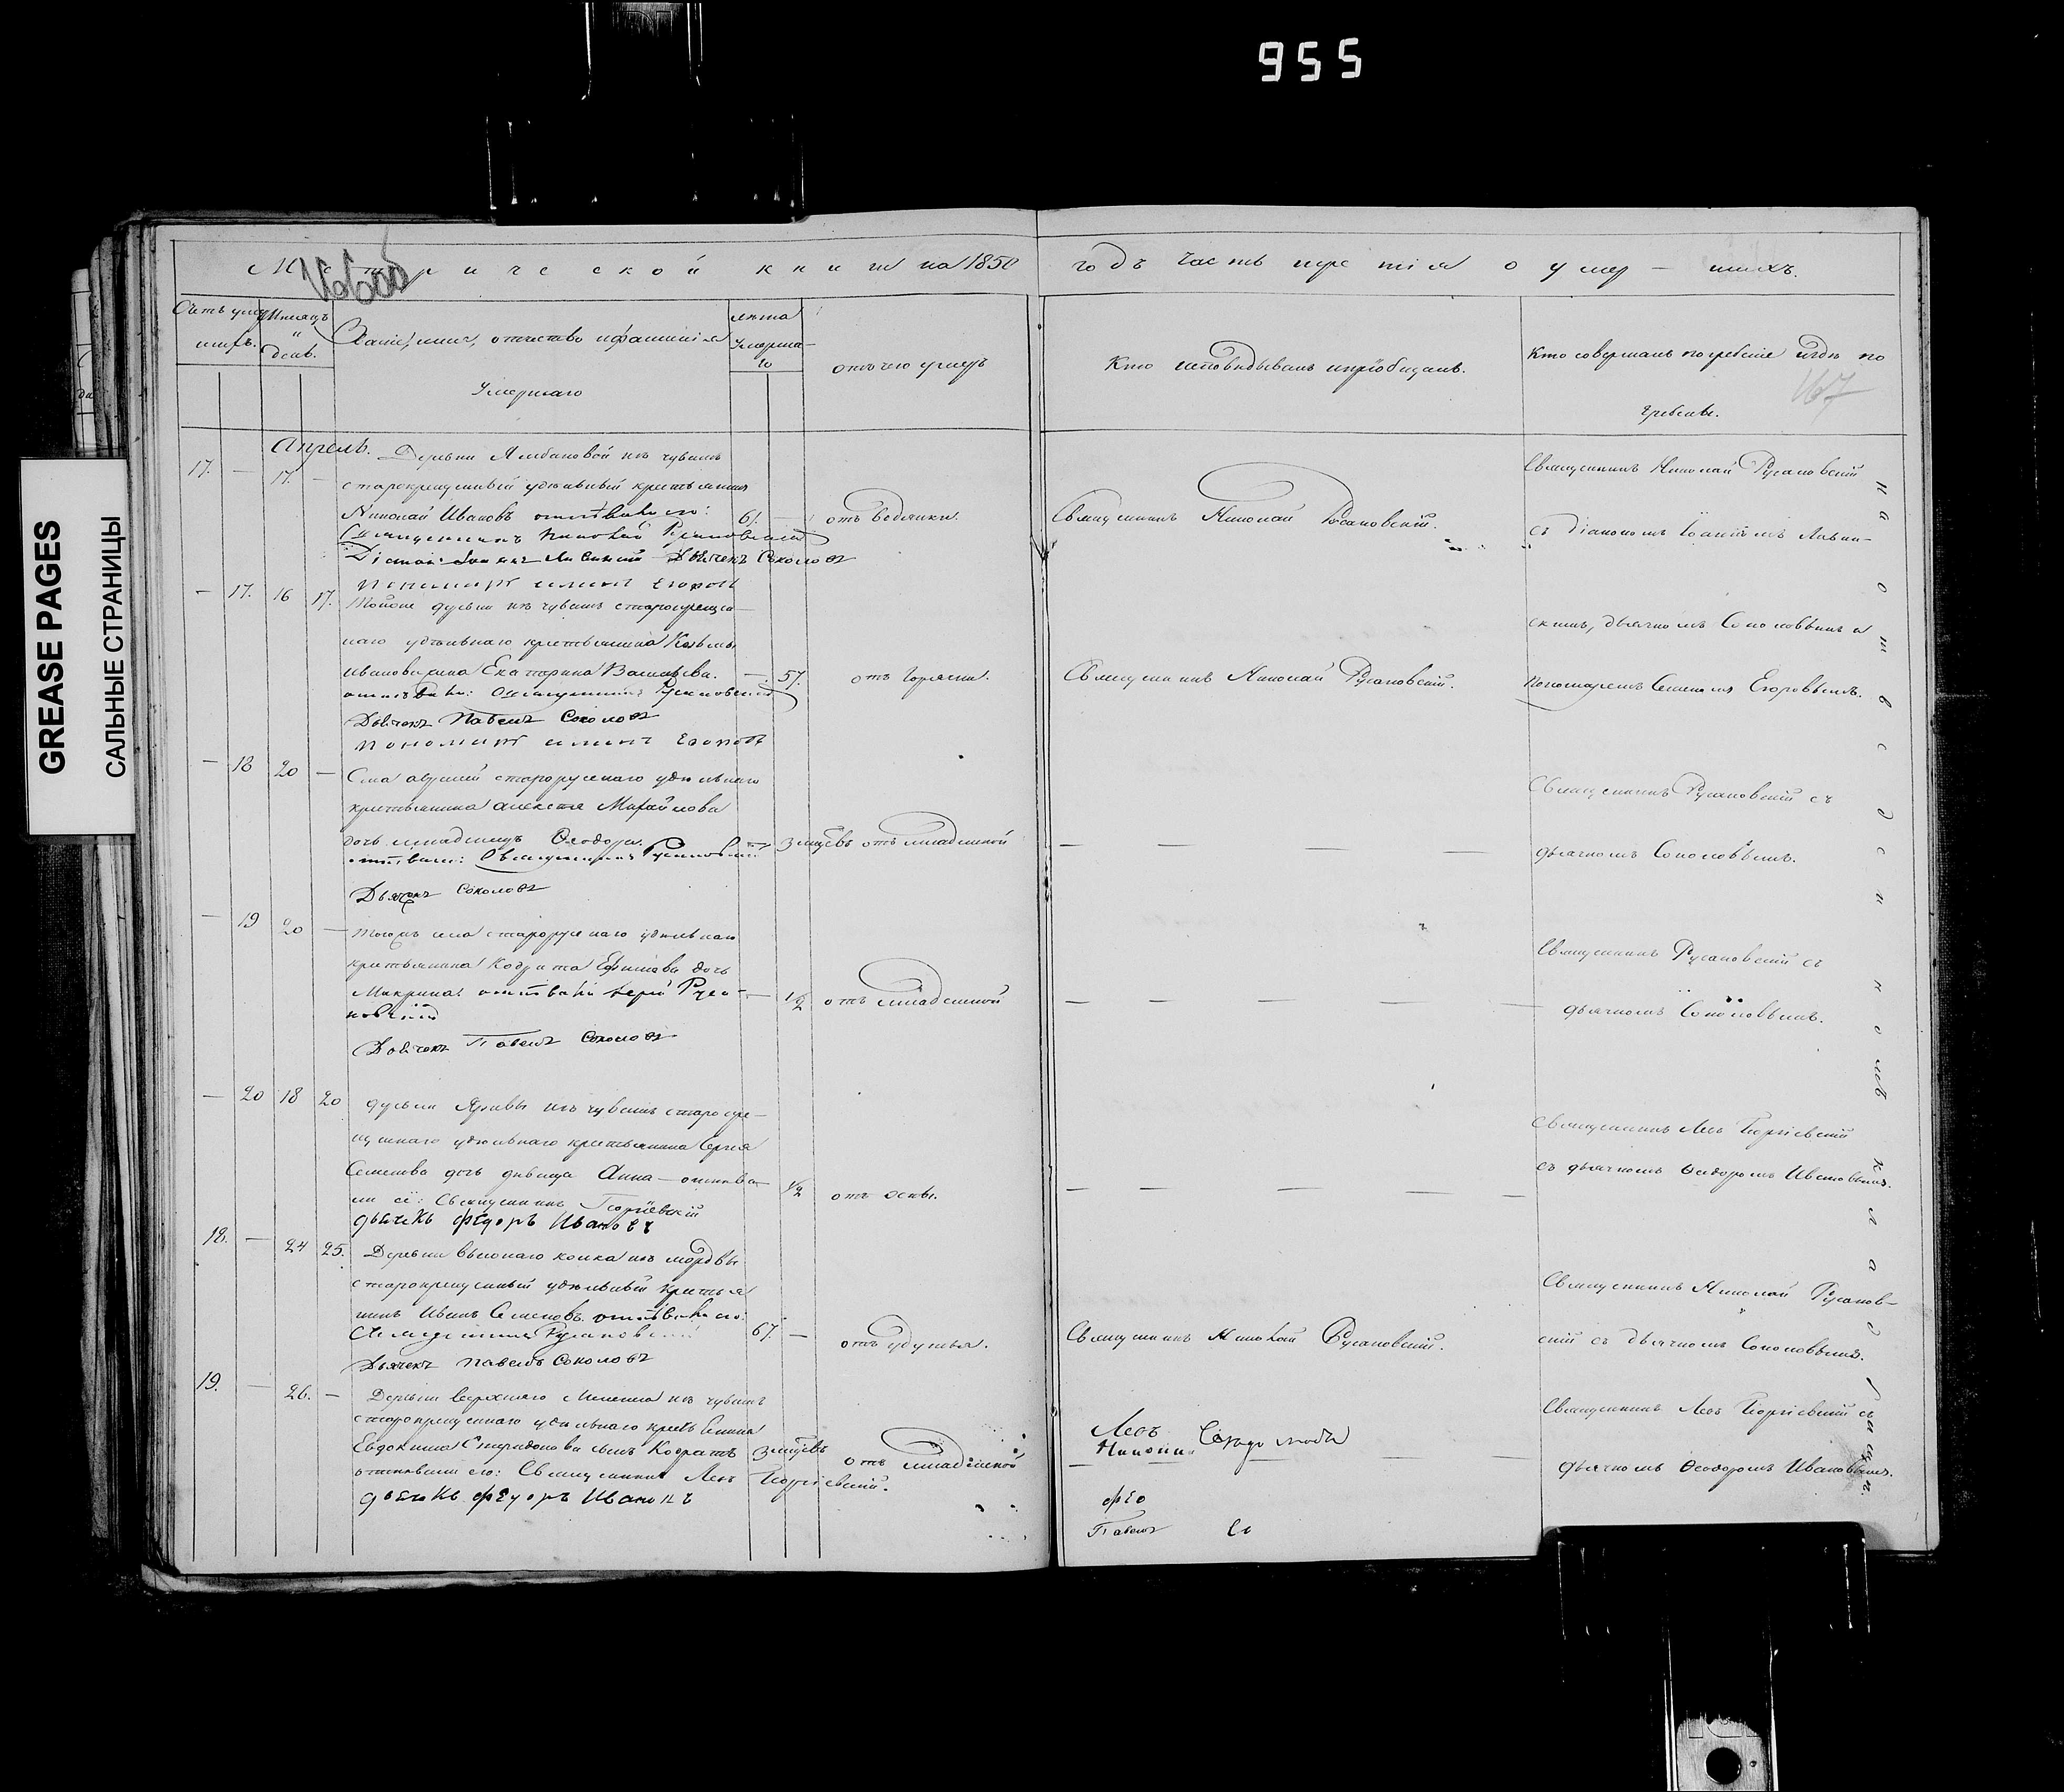 955
GREASE PAGES
САЛЬНЫЕ СТРАНИЦЫ
Метрической книги на 1850 годъ часть третія о умер – шихъ.
167
Счетъ умер
шихъ.
Мѣсяцъ
и
день.
Званіе, имя, отчество и фамилія
Умершаго
лѣта
Умерша-
го
отъ чего умеръ
Кто исповѣдывалъ и пріобщалъ.
Кто совершалъ погребеніе и гдѣ по
гребены.
Апрѣль.
17. — 17. —
Деревни изъ чувашъ
старокрещеный удѣльный крестьянинъ
Николай Ивановъ отпѣвали его:
Священникъ Николай Русановскій
Діаконъ Дьячекъ Соколовъ
Пономарь Егоровъ
61. —
отъ водянки.
Священникъ Николай Русановскій.
Священникъ Николай Русановскій
съ Діакономъ Іоанномъ
скимъ, дьячкомъ Соколовымъ и
пономаремъ Семеномъ Егоровымъ.
— 17. 16 17.
Тойже деревни изъ чувашъ старокреще
наго удѣльнаго крестьянина Козьмы
Иванова жена Екатерина Васильева.
отпѣвали: Священникъ Русановскій
Дьячекъ Павелъ Соколовъ
Пономарь Егоровъ
— 57.
отъ горячки.
Священникъ Николай Русановскій.
— 18 20 —
Села старорускаго удѣльнаго
крестьянина Алексѣя Михайлова
дочь младенецъ Ѳеодора.
отпѣвали: Священникъ Русановскій
Дьячекъ Соколовъ
— 3 мѣсѣвъ
отъ младенской
Священникъ Русановскій съ
дьячкомъ Соколовымъ.
— 19 20 —
Тогожъ села старорускаго удѣльнаго
крестьянина Кодрата Ефимова дочь
Макрина. отпѣвали іерей Руса-
новскій
Дьячекъ Павелъ Соколовъ
— 1/2
отъ младенской
Священникъ Русановскій съ
дьячкомъ Соколовымъ.
— 20 18 20
деревни изъ чувашъ старокре-
щенаго удѣльнаго крестьянина Сергѣя
Семенова дочь дѣвица Анна — отпѣва
ли её: Священникъ Георгіевскій
дьячекъ Федоръ Ивановъ
1/2
отъ оспы.
Священникъ Левъ Георгіевскій
съ дьячкомъ Ѳеодоромъ Ивановымъ.
18. — 24 25.
Деревни изъ мордвы
старокрещеный удѣльный крестья
нинъ Иванъ Семеновъ. отпѣвали его:
Священникъ Русановскій
Дьячекъ Павелъ Соколовъ
67. —
отъ удушья.
Священникъ Николай Русановскій.
Священникъ Николай Русанов-
скій съ дьячкомъ Соколовымъ.
19. — 26. —
Деревни верхняго изъ чувашъ
старокрещенаго удѣльнаго крестьянина
Евдокима Спиридонова сынъ Кодратъ
отпѣвали его: Священникъ Левъ Георгіевскій.
дьячекъ Федоръ Ивановъ
3 мѣсѣвъ
отъ младенской
Левъ
Священникъ Левъ Георгіевскій съ
дьячкомъ Ѳеодоромъ Ивановымъ.
Фео
Павелъ Со
на отведенномъ кладбищѣ.